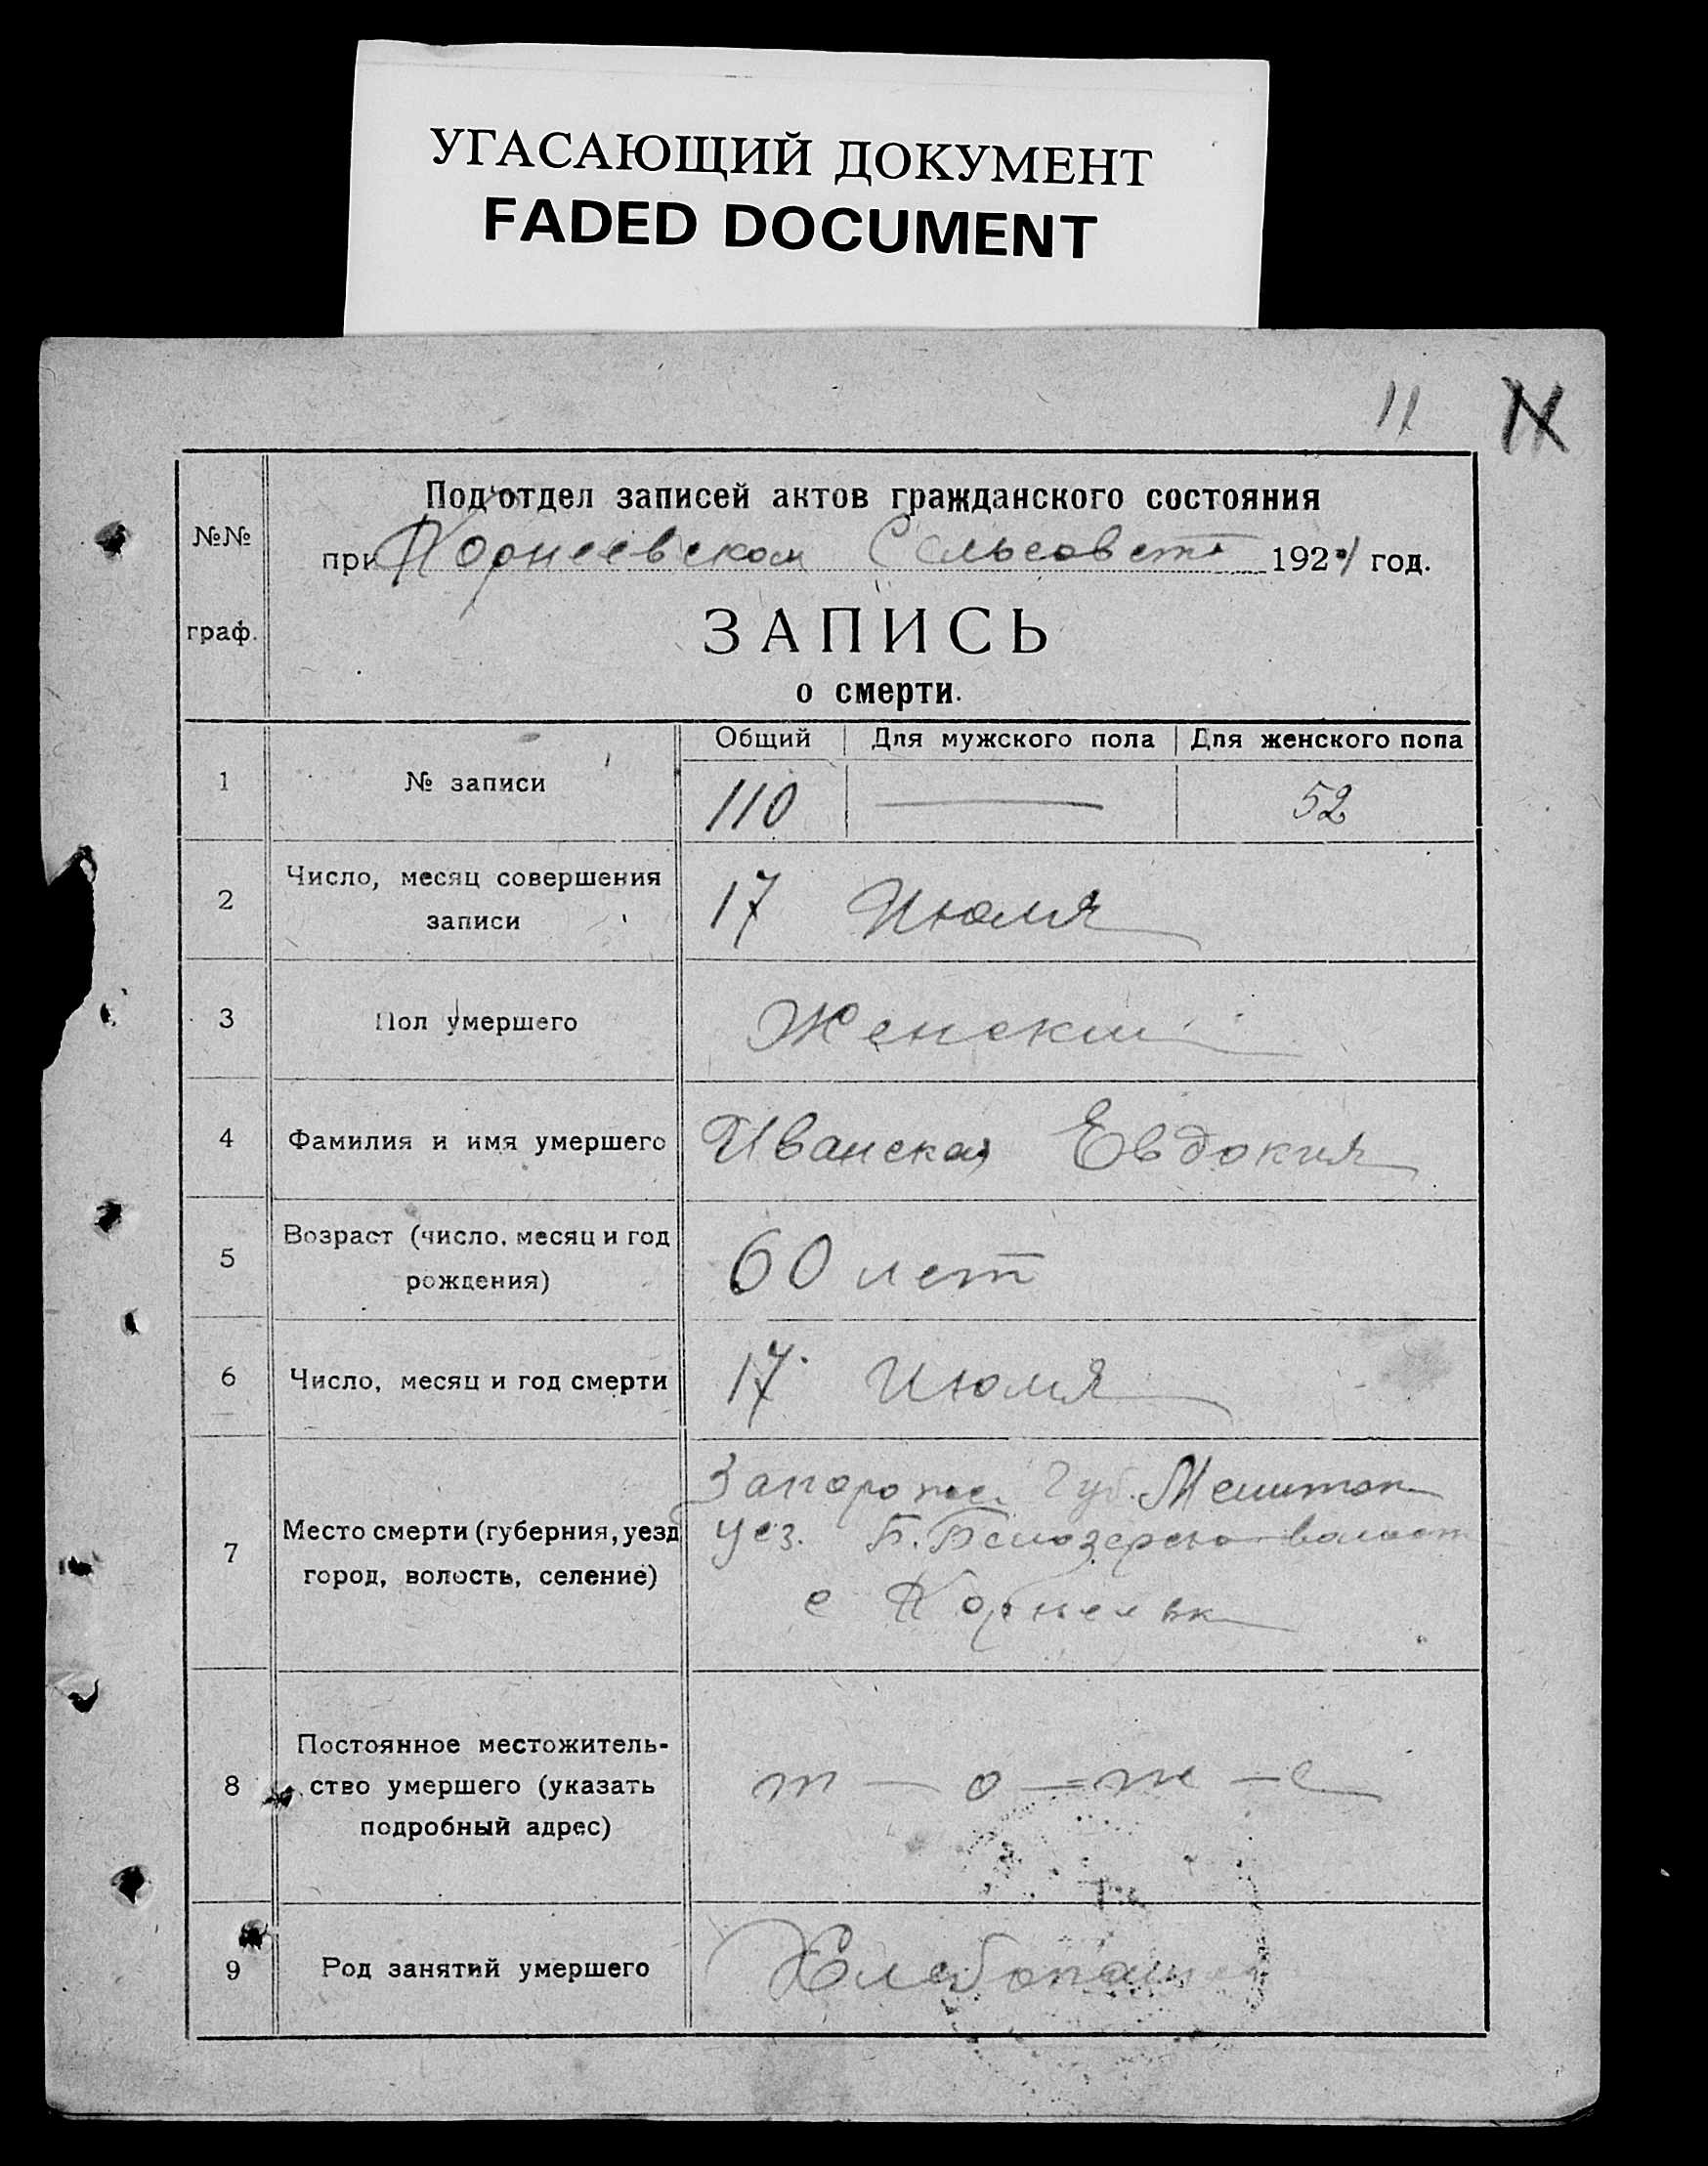 УГАСАЮЩИЙ ДОКУМЕНТ
FADED DOCUMENT
11
№№ граф.
Под'отдел записей актов гражданского состояния
при Корнеевском Сельсовете 192 год.
ЗАПИСЬ
о смерти.
Общий Для мужского пола Для женского пола
1 № записи 110 — 52
2 Число, месяц совершения
записи
17 Июля
3 Пол умершего Женский
4 Фамилия и имя умершего Иванская Евдокия
5 Возраст (число, месяц и год
рождения)
60 лет
6 Число, месяц и год смерти 17 Июля
7 Место смерти (губерния, уезд
город, волость, селение)
Запорож. Губ. Мелитоп
уез. Б. Белозерско волост
с Корнеевк
8 Постоянное местожитель-
ство умершего (указать
подробный адрес)
т — о — ж — е
9 Род занятий умершего Хлебопаш